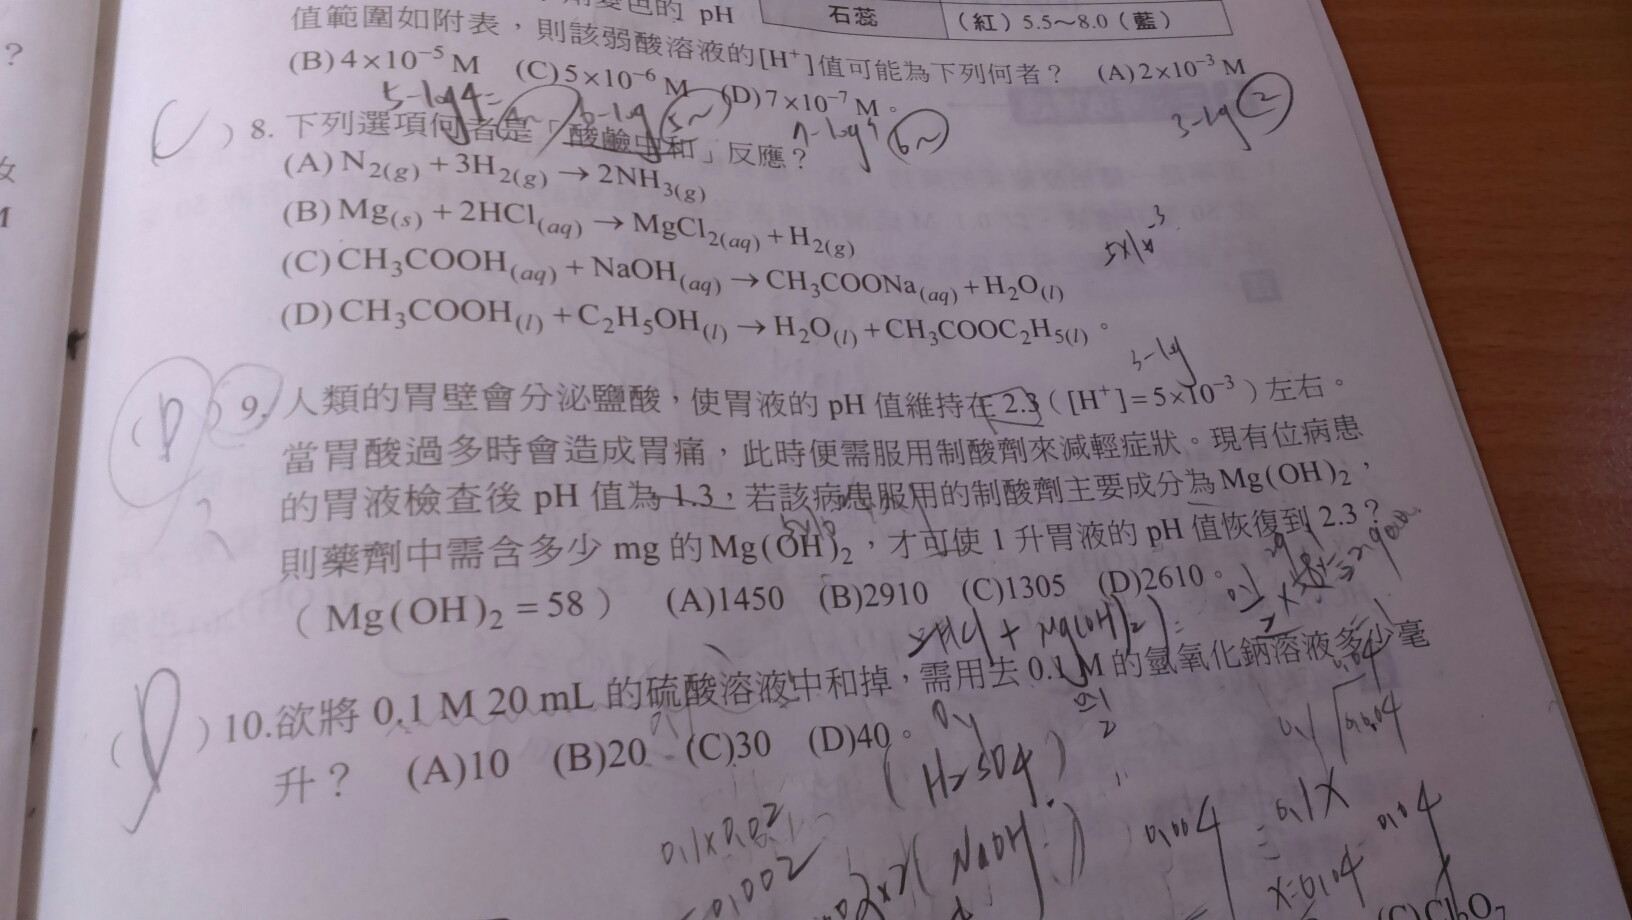 變色的 pH
石蕊 (紅) 5.5~8.0 (藍)
值範圍如附表，則該弱酸溶液的[H⁺]值可能為下列何者？ (A) 2×10⁻³ M
(B) 4×10⁻⁵ M (C) 5×10⁻⁶ M (D) 7×10⁻⁷ M。
5-log4=
3-log 2
(C) 8. 下列選項何者是「酸鹼中和」反應？
(A) N₂(g) + 3H₂(g) → 2NH₃(g)
(B) Mg(s) + 2HCl(aq) → MgCl₂(aq) + H₂(g)
5×10⁻³
(C) CH₃COOH(aq) + NaOH(aq) → CH₃COONa(aq) + H₂O(l)
(D) CH₃COOH(l) + C₂H₅OH(l) → H₂O(l) + CH₃COOC₂H₅(l)。
3-log
(D) 9. 人類的胃壁會分泌鹽酸，使胃液的 pH 值維持在 2.3 ([H⁺]=5×10⁻³) 左右。
當胃酸過多時會造成胃痛，此時便需服用制酸劑來減輕症狀。現有位病患
的胃液檢查後 pH 值為 1.3，若該病患服用的制酸劑主要成分為 Mg(OH)₂，
則藥劑中需含多少 mg 的 Mg(OH)₂，才可使 1 升胃液的 pH 值恢復到 2.3？
(Mg(OH)₂ = 58) (A)1450 (B)2910 (C)1305 (D)2610。
2HCl + Mg(OH)₂
(D) 10. 欲將 0.1 M 20 mL 的硫酸溶液中和掉，需用去 0.1 M 的氫氧化鈉溶液多少毫
升？ (A)10 (B)20 (C)30 (D)40。
(H₂SO₄)
0.1×0.02
0.002
(NaOH)
0.004 = 0.1X
X=0.04
0.04